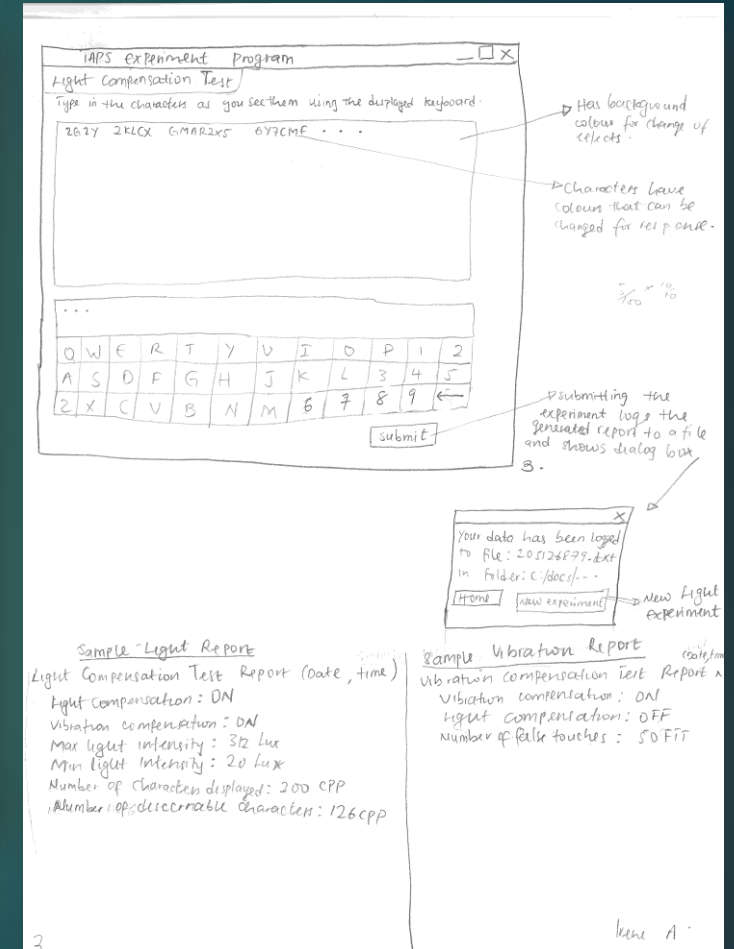 IAPS experiment program
Light Compensation Test
Type in the characters as you see them using the displayed keyboard.
2G2Y 2KLCX GMAR2X5 6Y7CMF . . .
. . .
Q W E R T Y U I O P 1 2
A S D F G H J K L 3 4 5
Z X C V B N M 6 7 8 9 ←
submit
3.
Has background
colour for change of
effects.
Characters have
colours that can be
changed for response.
submitting the
experiment logs the
generated report to a file
and shows dialog box
X
Your data has been logged
to file: 205126879.txt
in folder: C:/docs/---
Home New experiment
New Light
experiment
Sample Light Report
Light Compensation Test Report (Date, time)
Light Compensation : ON
Vibration compensation : ON
Max light intensity : 312 Lux
Min light Intensity : 20 Lux
Number of Characters displayed: 200 CPP
Number of discernable characters: 126 CPP
Sample Vibration Report
(Date, time
Vibration compensation Test Report
Vibration compensation : ON
Light compensation: OFF
Number of false touches : 50 FTT
Irene A.